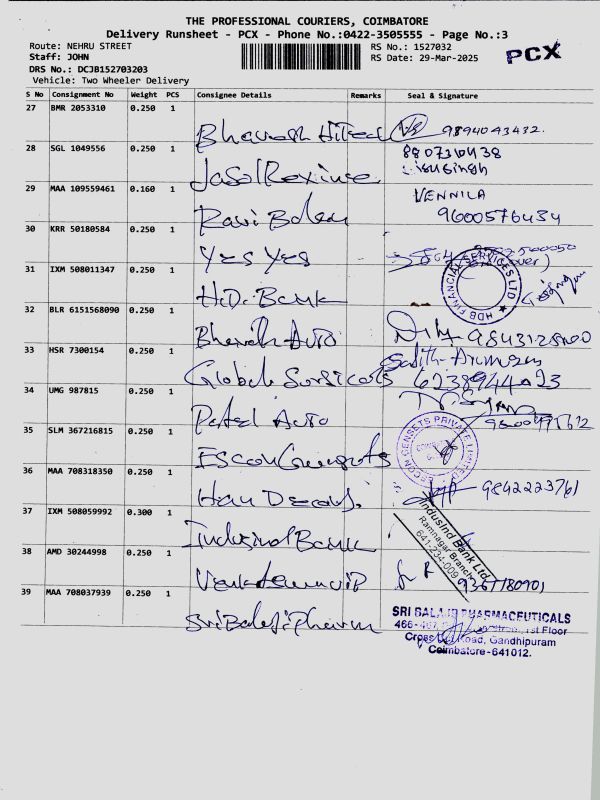 THE PROFESSIONAL COURIERS, COIMBATORE
Delivery Runsheet - PCX - Phone No.:0422-3505555 - Page No.:3
Route: NEHRU STREET
RS No.: 1527032
Staff: JOHN
RS Date: 29-Mar-2025
PCX
DRS No.: DCJB152703203
Vehicle: Two Wheeler Delivery
S No Consignment No Weight PCS Consignee Details Remarks Seal & Signature
27 BMR 2053310 0.250 1
Bharath 9894043432.
28 SGL 1049556 0.250 1
8807310438
29 MAA 109559461 0.160 1
VENNILA
Ravi 9600576434
30 KRR 50180584 0.250 1
Yes Yes
31 IXM 508011347 0.250 1
HDB FINANCIAL SERVICES LTD
H.D. Bank
32 BLR 6151568090 0.250 1
Bharath Auto
33 HSR 7300154 0.250 1
Global Surgicals 6238944023
34 UMG 987815 0.250 1
Patel Auto
35 SLM 367216815 0.250 1
ESCON GENSETS PRIVATE LIMITED
Escon Gensets
36 MAA 708318350 0.250 1
Hari 9842223761
37 IXM 508059992 0.300 1
IndusInd Bank Ltd
Ramnagar Branch
641-234-009
Indusind Bank
38 AMD 30244998 0.250 1
9367180901
39 MAA 708037939 0.250 1
Sri Balaji Pharm
SRI BALAJI PHARMACEUTICALS
466-467, 1st Floor
Cross Cut Road, Gandhipuram
Coimbatore-641012.